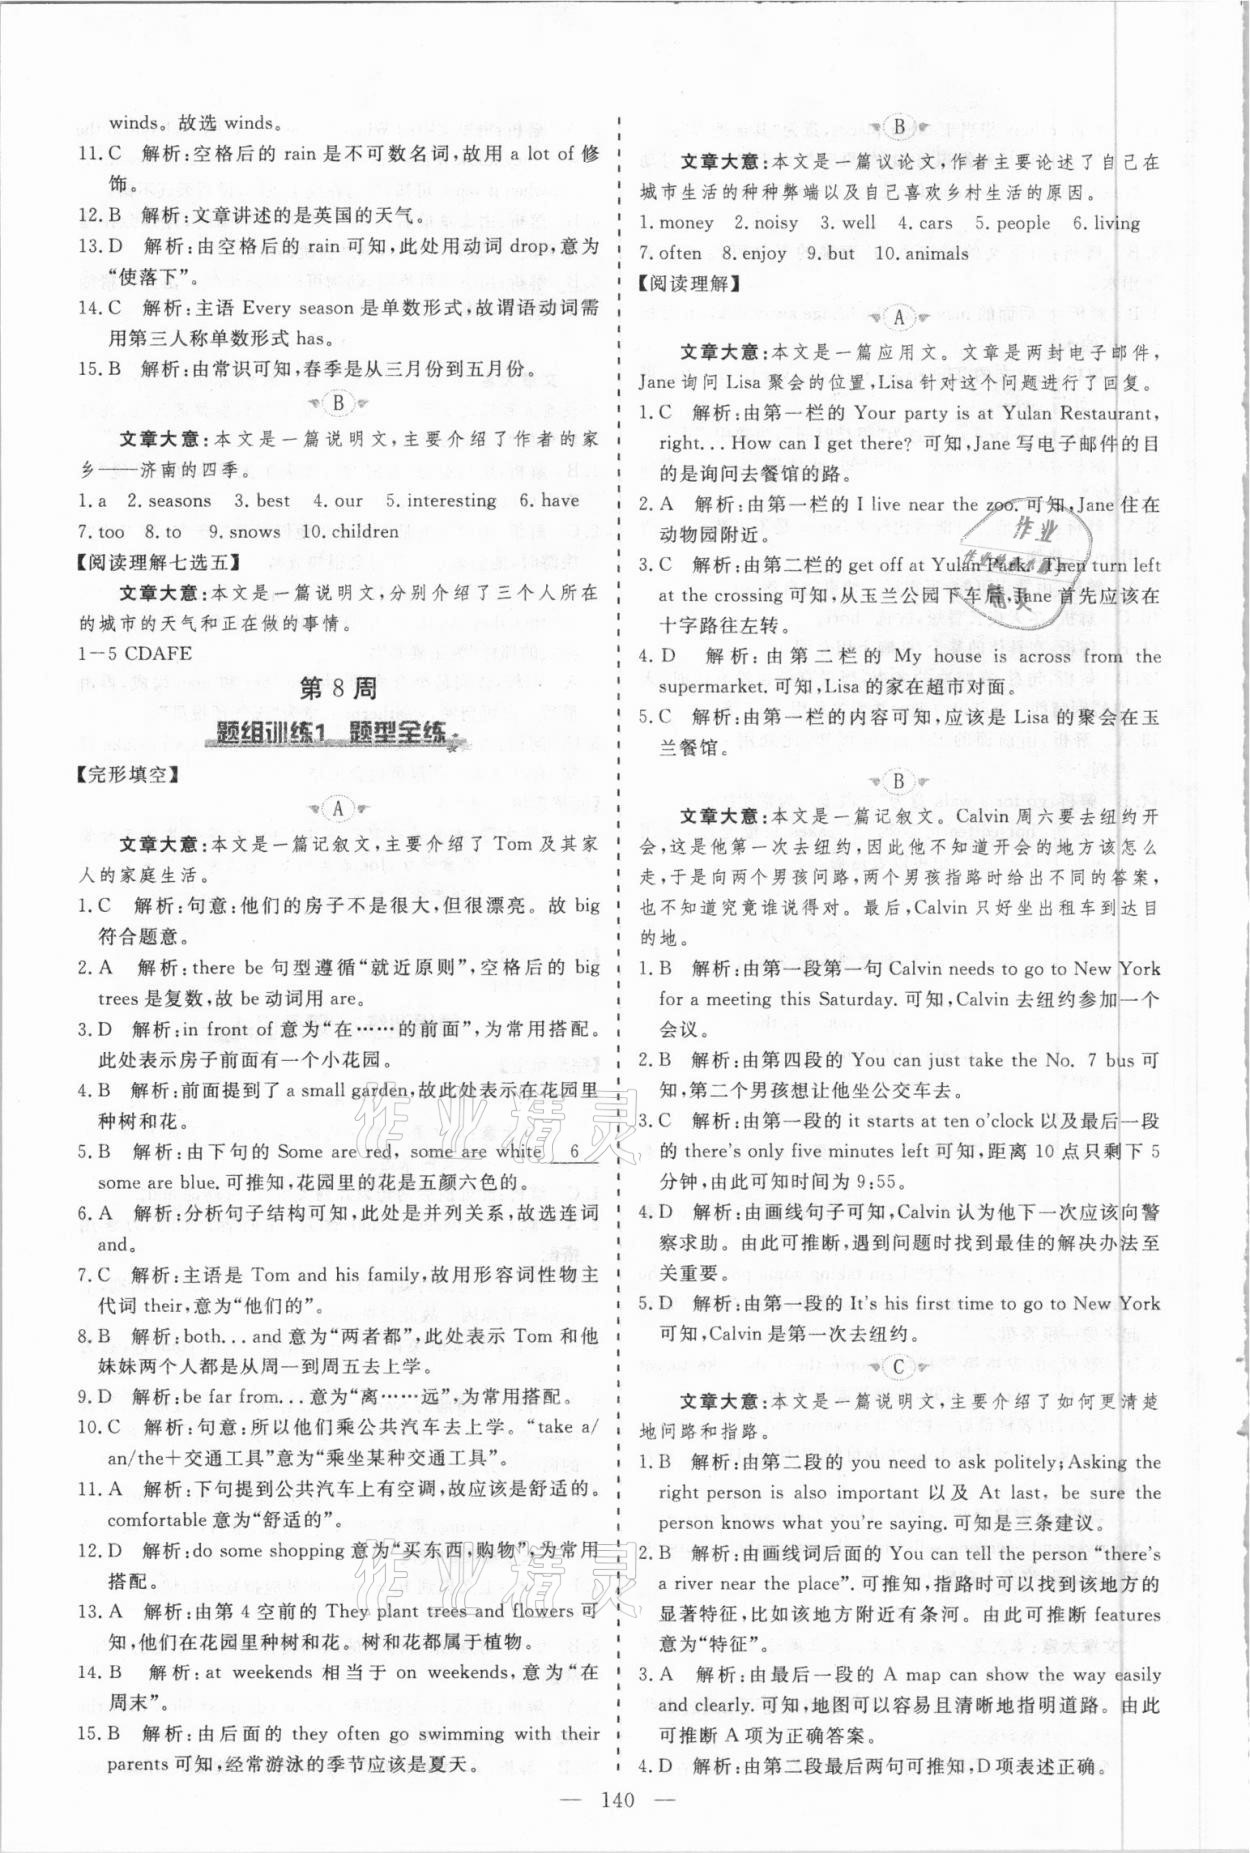 winds。故选 winds。
11. C　解析:空格后的 rain 是不可数名词,故用 a lot of 修
饰。
12. B　解析:文章讲述的是英国的天气。
13. D　解析:由空格后的 rain 可知,此处用动词 drop,意为
“使落下”。
14. C　解析:主语 Every season 是单数形式,故谓语动词需
用第三人称单数形式 has。
15. B　解析:由常识可知,春季是从三月份到五月份。
B
文章大意:本文是一篇说明文,主要介绍了作者的家
乡——济南的四季。
1. a　2. seasons　3. best　4. our　5. interesting　6. have
7. too　8. to　9. snows　10. children
【阅读理解七选五】
文章大意:本文是一篇说明文,分别介绍了三个人所在
的城市的天气和正在做的事情。
1—5 CDAFE
第 8 周
题组训练1　题型全练
【完形填空】
A
文章大意:本文是一篇记叙文,主要介绍了 Tom 及其家
人的家庭生活。
1. C　解析:句意:他们的房子不是很大,但很漂亮。故 big
符合题意。
2. A　解析:there be 句型遵循“就近原则”,空格后的 big
trees 是复数,故 be 动词用 are。
3. D　解析:in front of 意为“在……的前面”,为常用搭配。
此处表示房子前面有一个小花园。
4. B　解析:前面提到了 a small garden,故此处表示在花园里
种树和花。
5. B　解析:由下句的 Some are red, some are white 6
some are blue. 可推知,花园里的花是五颜六色的。
6. A　解析:分析句子结构可知,此处是并列关系,故选连词
and。
7. C　解析:主语是 Tom and his family,故用形容词性物主
代词 their,意为“他们的”。
8. B　解析:both...and 意为“两者都”,此处表示 Tom 和他
妹妹两个人都是从周一到周五去上学。
9. D　解析:be far from...意为“离……远”,为常用搭配。
10. C　解析:句意:所以他们乘公共汽车去上学。“take a/
an/the+交通工具”意为“乘坐某种交通工具”。
11. A　解析:下句提到公共汽车上有空调,故应该是舒适的。
comfortable 意为“舒适的”。
12. D　解析:do some shopping 意为“买东西,购物”,为常用
搭配。
13. A　解析:由第 4 空前的 They plant trees and flowers 可
知,他们在花园里种树和花。树和花都属于植物。
14. B　解析:at weekends 相当于 on weekends,意为“在
周末”。
15. B　解析:由后面的 they often go swimming with their
parents 可知,经常游泳的季节应该是夏天。
B
文章大意:本文是一篇议论文,作者主要论述了自己在
城市生活的种种弊端以及自己喜欢乡村生活的原因。
1. money　2. noisy　3. well　4. cars　5. people　6. living
7. often　8. enjoy　9. but　10. animals
【阅读理解】
A
文章大意:本文是一篇应用文。文章是两封电子邮件,
Jane 询问 Lisa 聚会的位置,Lisa 针对这个问题进行了回复。
1. C　解析:由第一栏的 Your party is at Yulan Restaurant,
right... How can I get there? 可知,Jane 写电子邮件的目
的是询问去餐馆的路。
2. A　解析:由第一栏的 I live near the zoo. 可知,Jane 住在
动物园附近。
3. C　解析:由第二栏的 get off at Yulan Park. Then turn left
at the crossing 可知,从玉兰公园下车后,Jane 首先应该在
十字路往左转。
4. D　解析:由第二栏的 My house is across from the
supermarket. 可知,Lisa 的家在超市对面。
5. C　解析:由第一栏的内容可知,应该是 Lisa 的聚会在玉
兰餐馆。
B
文章大意:本文是一篇记叙文。Calvin 周六要去纽约开
会,这是他第一次去纽约,因此他不知道开会的地方该怎么
走,于是向两个男孩问路,两个男孩指路时给出不同的答案,
也不知道究竟谁说得对。最后,Calvin 只好坐出租车到达目
的地。
1. B　解析:由第一段第一句 Calvin needs to go to New York
for a meeting this Saturday. 可知,Calvin 去纽约参加一个
会议。
2. B　解析:由第四段的 You can just take the No. 7 bus 可
知,第二个男孩想让他坐公交车去。
3. C　解析:由第一段的 it starts at ten o'clock 以及最后一段
的 there's only five minutes left 可知,距离 10 点只剩下 5
分钟,由此可知时间为 9:55。
4. D　解析:由画线句子可知,Calvin 认为他下一次应该向警
察求助。由此可推断,遇到问题时找到最佳的解决办法至
关重要。
5. D　解析:由第一段的 It's his first time to go to New York
可知,Calvin 是第一次去纽约。
C
文章大意:本文是一篇说明文,主要介绍了如何更清楚
地问路和指路。
1. B　解析:由第二段的 you need to ask politely;Asking the
right person is also important 以及 At last, be sure the
person knows what you're saying. 可知是三条建议。
2. B　解析:由画线词后面的 You can tell the person “there's
a river near the place”. 可推知,指路时可以找到该地方的
显著特征,比如该地方附近有条河。由此可推断 features
意为“特征”。
3. A　解析:由最后一段的 A map can show the way easily
and clearly. 可知,地图可以容易且清晰地指明道路。由此
可推断 A 项为正确答案。
4. D　解析:由第二段最后两句可推知,D项表述正确。
— 140 —
作业精灵
作业精灵